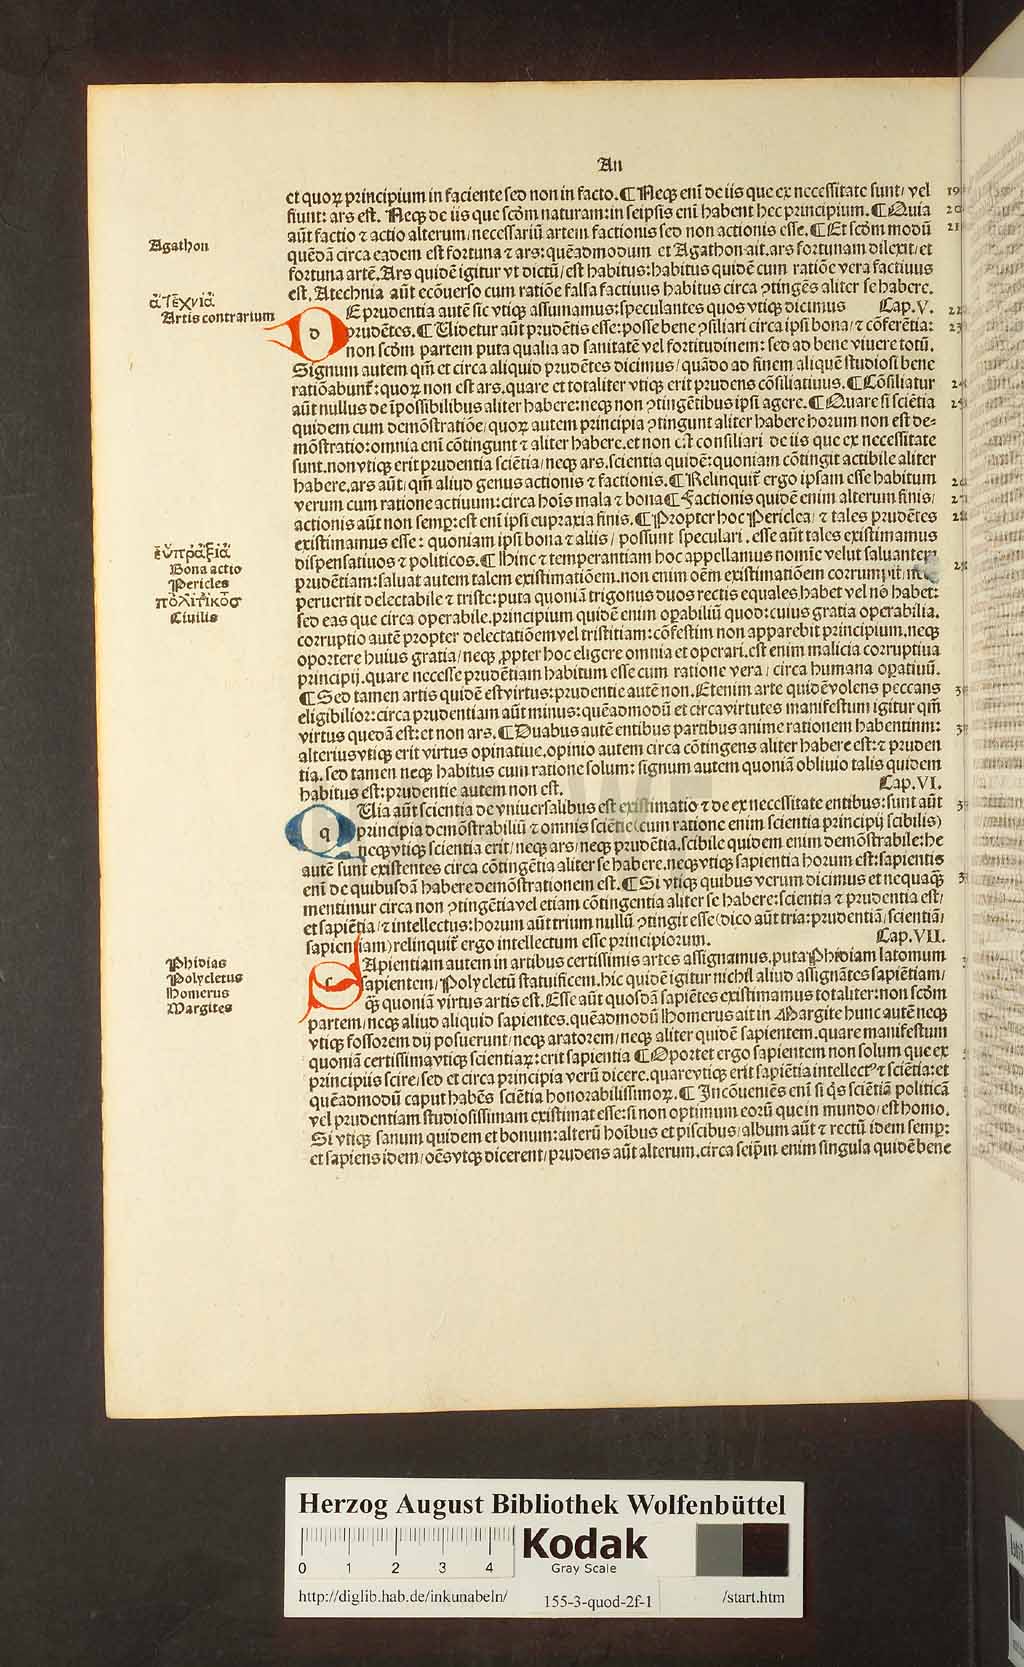 An
et quoꝝ principium in faciente sed non in facto. ¶ Neqꝫ eni̅ de iis que ex necessitate sunt/ vel 19
fiunt: ars est. Neqꝫ de iis que scdm naturam: in seipsis eni̅ habent hec principium. ¶ Quia 20
aut̅ factio ⁊ actio alterum/ necessariu̅ artem factionis sed non actionis esse. ¶ Et scdm modu̅ 21
que̅da̅ circa eadem est fortuna ⁊ ars: que̅admodum et Agathon ait. ars fortunam dilexit/ et
Agathon
fortuna arte̅. Ars quide̅ igitur vt dictu̅/ est habitus: habitus quide̅ cum ratio̅e vera factiuus
est. Atechnia aut̅ eco̅uerso cum ratio̅e falsa factiuus habitus circa ꝯtinge̅s aliter se habere.
ἀτεχνία
Artis contrarium
d
E prudentia aute̅ sic vtiqꝫ assumamus: speculantes quos vtiqꝫ dicimus Cap.V. 22
prude̅tes. ¶ Uidetur aut̅ prude̅tis esse: posse bene ꝯsiliari circa ipsi bona/ ⁊ co̅fere̅tia: 23
non scdm partem puta qualia ad sanitate̅ vel fortitudinem: sed ad bene viuere totu̅.
Signum autem qm̅ et circa aliquid prude̅tes dicimus/ qua̅do ad finem alique̅ studiosi bene
ratio̅abunt̅: quoꝝ non est ars. quare et totaliter vtiqꝫ erit prudens co̅siliatiuus. ¶ Co̅siliatur 24
aut̅ nullus de i̅possibilibus aliter habere: neqꝫ non ꝯtinge̅tibus ipsi agere. ¶ Quare si scie̅tia 25
quidem cum demo̅stratio̅e/ quoꝝ autem principia ꝯtingunt aliter habere horum non est de⸗
mo̅stratio: omnia eni̅ co̅tingunt ⁊ aliter habere. et non est consiliari de iis que ex necessitate
sunt. non vtiqꝫ erit prudentia scie̅tia/ neqꝫ ars. scientia quide̅: quoniam co̅tingit actibile aliter
habere. ars aut̅/ qm̅ aliud genus actionis ⁊ factionis. ¶ Relinquit̅ ergo ipsam esse habitum
verum cum ratione actiuum: circa hoi̅s mala ⁊ bona ¶ Factionis quide̅ enim alterum finis/
actionis aut̅ non semp̲: est eni̅ ipsi eupraxia finis. ¶ Propter hoc Periclea/ ⁊ tales prude̅tes
existimamus esse: quoniam ipsi bona ⁊ aliis/ possunt speculari. esse aut̅ tales existimamus
dispensatiuos ⁊ politicos. ¶ Hinc ⁊ temperantiam hoc appellamus nomi̅e velut saluantem
ἐυπραξία
Bona actio
Pericles
πολιτικός
Ciuilis
prude̅tiam: saluat autem talem existimatio̅em. non enim oe̅m existimatio̅em corrumpit
peruertit delectabile ⁊ triste: puta quonia̅ trigonus duos rectis equales habet vel no̅ habet:
sed eas que circa operabile. principium quide̅ enim op̲abiliu̅ quod: cuius gratia operabilia.
corruptio aute̅ propter delectatio̅em vel tristitiam: co̅festim non apparebit principium. neqꝫ
oportere huius gratia/ neqꝫ ꝓpter hoc eligere omnia et operari. est enim malicia corruptiua
principij. quare necesse prude̅tiam habitum esse cum ratione vera/ circa humana op̲atiuu̅.
¶ Sed tamen artis quide̅ est virtus: prudentie aute̅ non. Etenim arte quide̅ volens peccans
eligibilior: circa prudentiam aut̅ minus: que̅admodu̅ et circa virtutes manifestum igitur qm̅
virtus queda̅ est: et non ars. ¶ Duabus aute̅ entibus partibus anime rationem habentium:
alterius vtiqꝫ erit virtus opinatiue. opinio autem circa co̅tingens aliter habere est: ⁊ pruden
tia. sed tamen neqꝫ habitus cum ratione solum: signum autem quonia̅ obliuio talis quidem
habitus est: prudentie autem non est. Cap.VI.
q
Uia aut̅ scientia de vniuersalibus est existimatio ⁊ de ex necessitate entibus: sunt aut̅
principia demo̅strabiliu̅ ⁊ omnis scie̅tie (cum ratione enim scientia principij scibilis)
neqꝫ vtiqꝫ scientia erit/ neqꝫ ars/ neqꝫ prude̅tia. scibile quidem enim demo̅strabile: he
aute̅ sunt existentes circa co̅tinge̅tia aliter se habere. neqꝫ vtiqꝫ sapientia horum est: sapientis
eni̅ de quibusda̅ habere demo̅strationem est. ¶ Si vtiqꝫ quibus verum dicimus et nequaqꝫ̅
mentimur circa non ꝯtinge̅tia vel etiam co̅tingentia aliter se habere: scientia ⁊ prudentia est/
et sapie̅tia/ ⁊ intellectus: horum aut̅ trium nullu̅ ꝯtingit esse (dico aut̅ tria: prudentia̅/ scientia̅/
sapientiam) relinquit̅ ergo intellectum esse principiorum. Cap.VII.
s
Apientiam autem in artibus certissimis artes assignamus. puta Phidiam latomum
sapientem/ Polycletu̅ statuificem. hic quide̅ igitur nichil aliud assigna̅tes sapientiam/
Phidias
Polycletus
Homerus
Margites
qꝫ̅ quonia̅ virtus artis est. Esse aut̅ quosda̅ sapie̅tes existimamus totaliter: non scdm
partem/ neqꝫ aliud aliquid sapientes. que̅admodu̅ Homerus ait in Margite hunc aute̅ neqꝫ
vtiqꝫ fossorem dij posuerunt/ neqꝫ aratorem/ neqꝫ aliter quide̅ sapientem. quare manifestum
quonia̅ certissima vtiqꝫ scientiaꝝ: erit sapientia ¶ Oportet ergo sapientem non solum que ex
principiis scire/ sed et circa principia veru̅ dicere. quare vtiqꝫ erit sapie̅tia intellectꝰ ⁊ scie̅tia: et
que̅admodu̅ caput habe̅s scie̅tia honorabilissimoꝝ. ¶ Inco̅uenie̅s eni̅ si q̅s scie̅tia̅ politica̅
vel prudentiam studiosissimam existimat esse: si non optimum eoru̅ que in mundo/ est homo.
Si vtiqꝫ sanum quidem et bonum: alteru̅ hoi̅bus et piscibus/ album aut̅ ⁊ rectu̅ idem semp̲:
et sapiens idem/ oe̅s vtqꝫ dicerent/ prudens aut̅ alterum. circa seip̅m enim singula quide̅ bene
Herzog August Bibliothek Wolfenbüttel
0 1 2 3 4
Kodak
Gray Scale
http://diglib.hab.de/inkunabeln/ 155-3-quod-2f-1 /start.htm